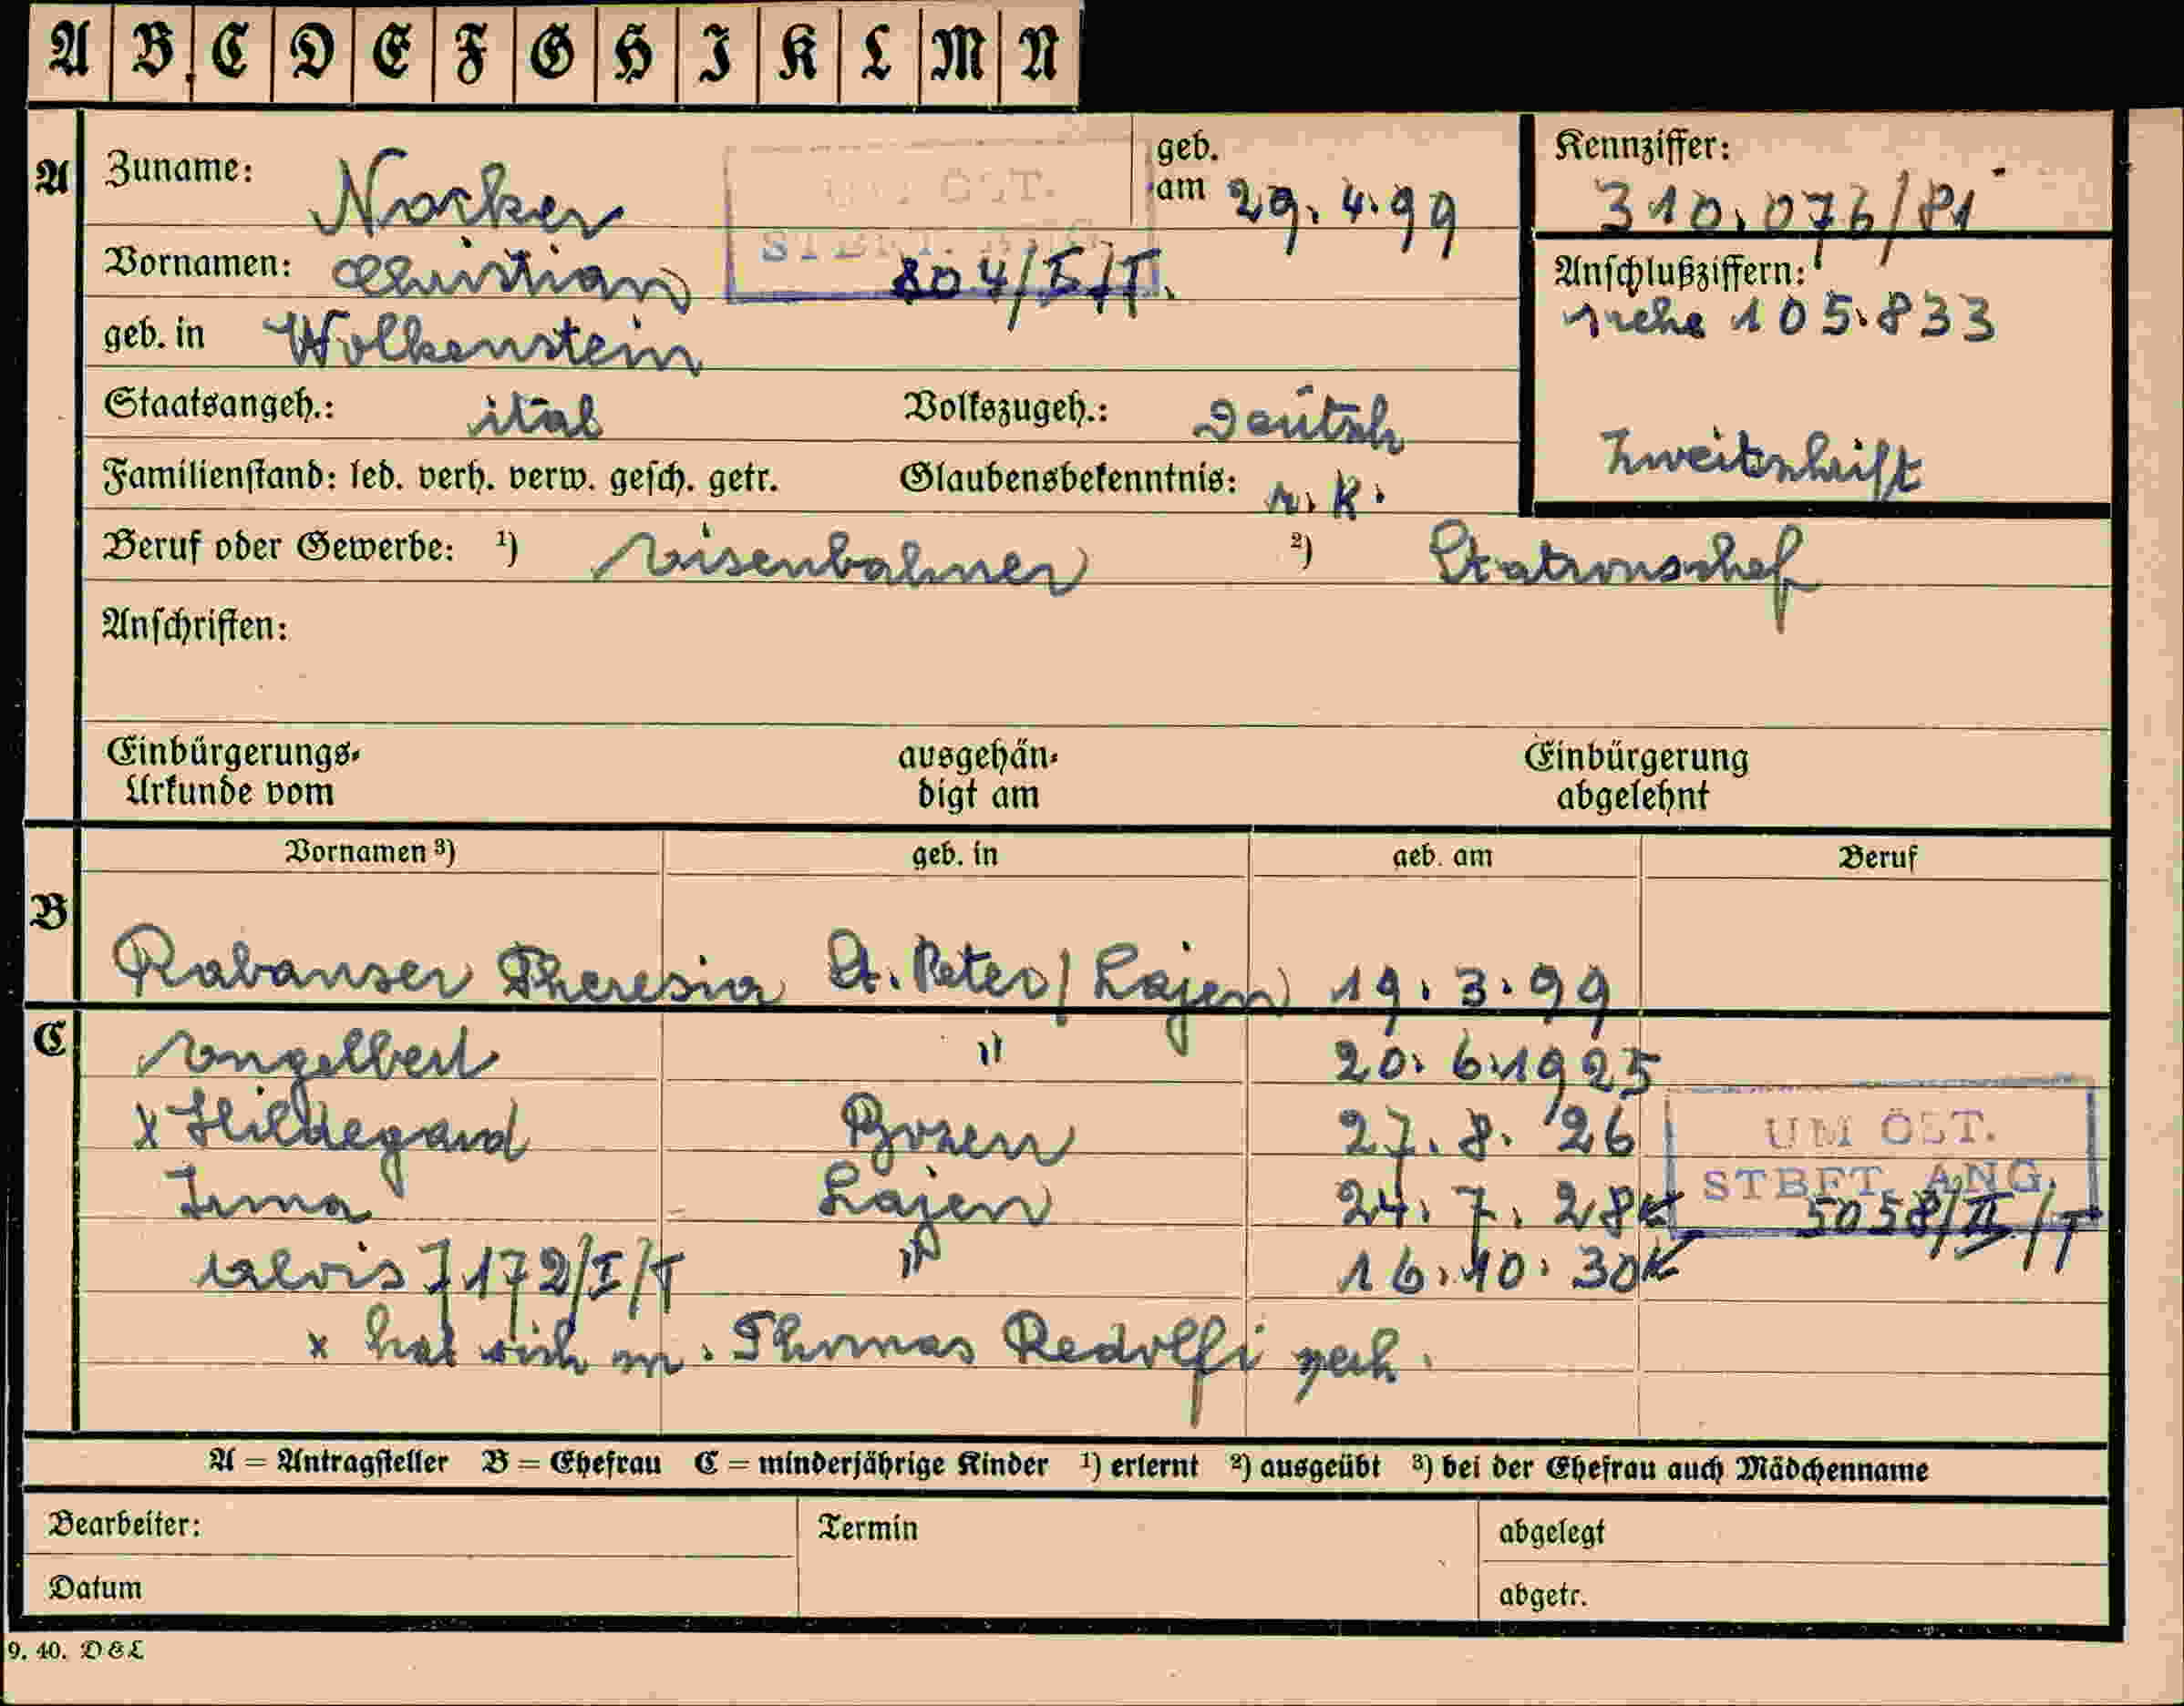 A B C D E F G H I K L M N
A
Zuname: Nocker
geb. am 29.4.99
Kennziffer: 310.076/81
UM ÖST.
STBFT. ANG.
804/I/T.
Vornamen: Christian
Anschlußziffern:
siehe 105.833
geb. in Wolkenstein
Staatsangeh.: ital Volkszugeh.: Deutsch
Zweitschrift
Familienstand: led. verh. verw. gesch. getr. Glaubensbekenntnis: r. k.
Beruf oder Gewerbe: ¹) Eisenbahner ²) Stationschef
Anschriften:
Einbürgerungs-Urkunde vom ausgehän-digt am Einbürgerung abgelehnt
Vornamen ³) geb. in geb. am Beruf
B
Rabanser Theresia St. Peter/Lajen 19.3.99
C
Engelbert " 20.6.1925
x Hildegard Bozen 27.8.26
UM ÖST.
STBFT. ANG.
5058/II/T
Irma Lajen 24.7.28
Alois 7172/I/T " 16.10.30
x hat sich m. Thomas Redolfi verh.
A = Antragsteller B = Ehefrau C = minderjährige Kinder ¹) erlernt ²) ausgeübt ³) bei der Ehefrau auch Mädchenname
Bearbeiter: Termin abgelegt
Datum abgetr.
9. 40. D & L